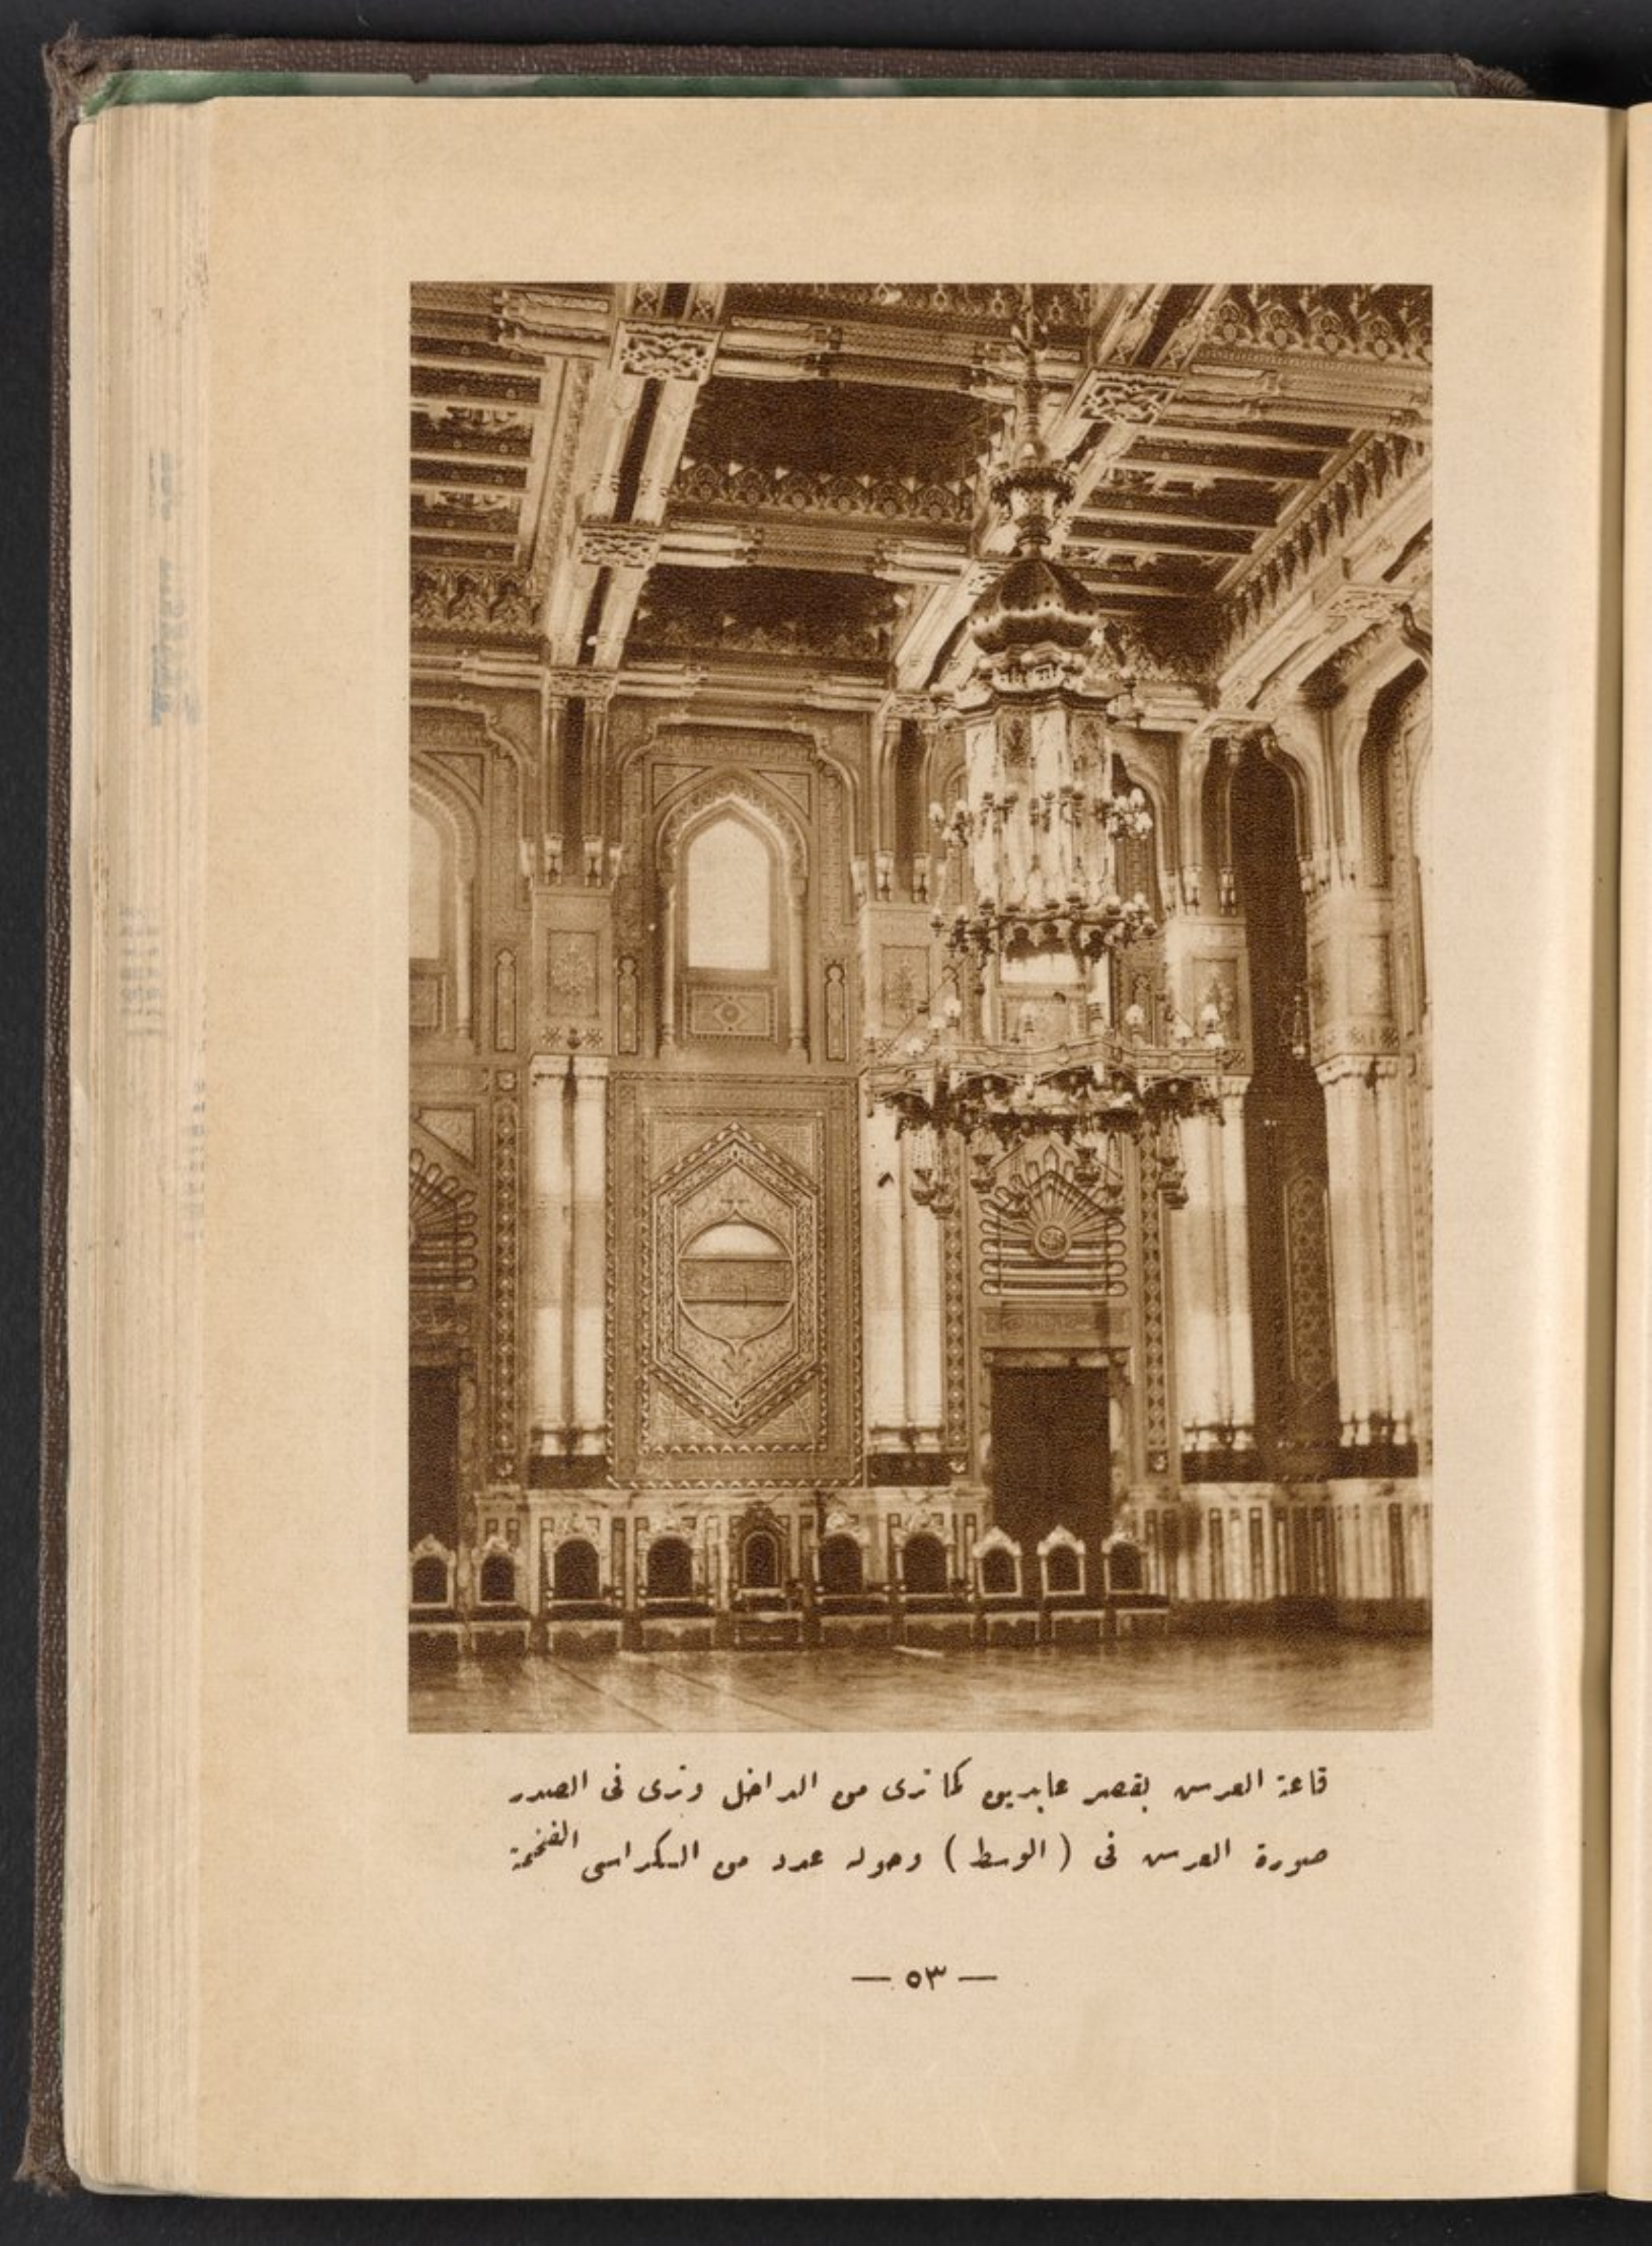 قاعة العرش بقصر عابدين كما ترى من الداخل وترى فى الصدر
صورة العرش فى ( الوسط ) وحوله عدد من الكراسى الفخمة
— ٥٣ —